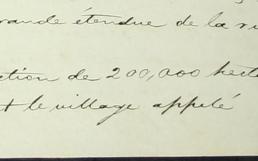 grande étendue de la
ction de 200,000 hect
+ le village appelé